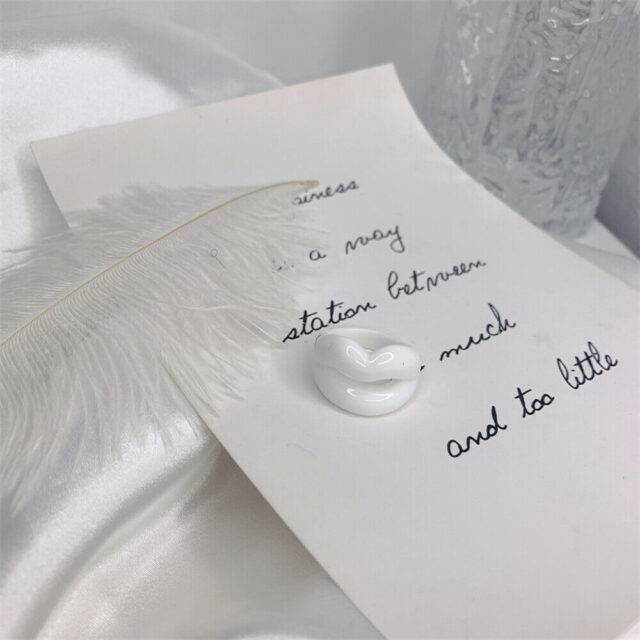 a way
station between
much
and too little